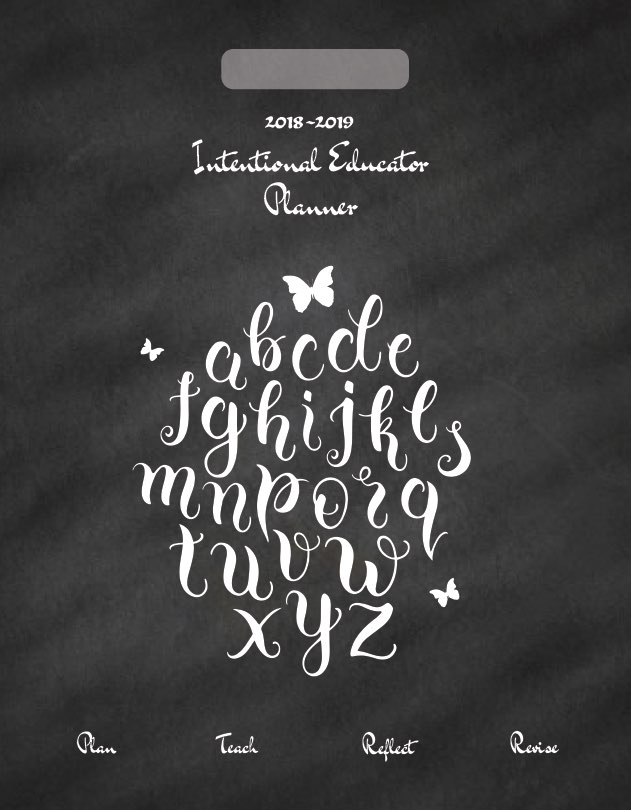 2018-2019
Intentional Educator
Planner
abcde
fghijkls
mnporq
tuvw
xyz
Plan Teach Reflect Revise